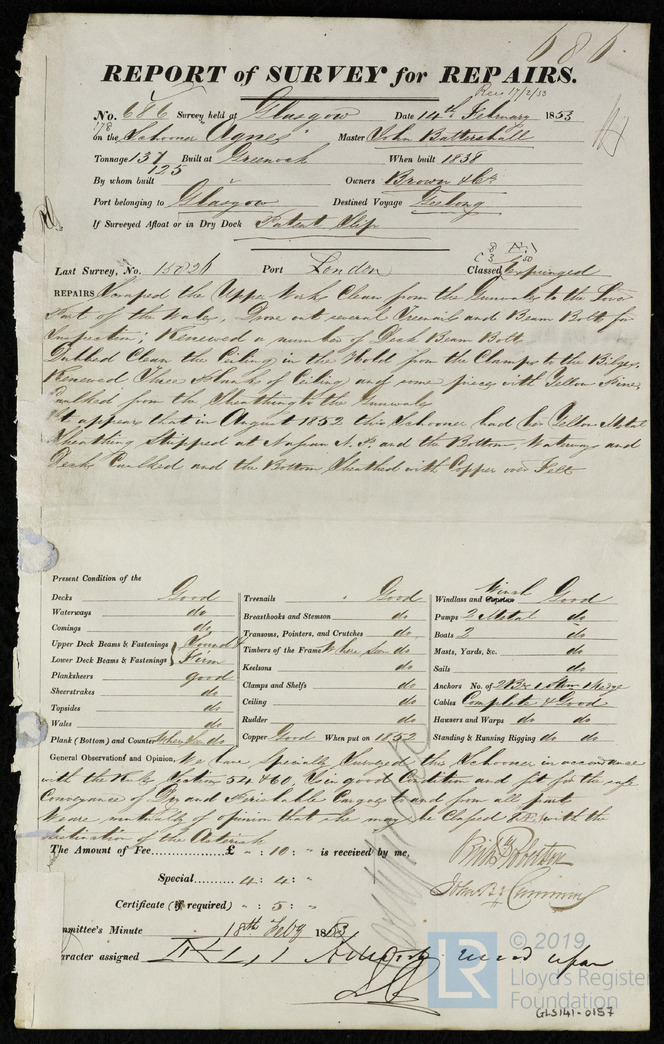 686
REPORT of SURVEY for REPAIRS.
Rec 17/2/53
No. 686 Survey held at Glasgow Date 14th February 1853
178
on the Schooner Agnes Master John Battershall
Tonnage 137 Built at Greenock When built 1838
125
By whom built Owners Brown & Co.
Port belonging to Glasgow Destined Voyage Geelong
If Surveyed Afloat or in Dry Dock Patent Slip
Last Survey, No. 15826 Port London Classed Expunged
REPAIRS Scraped the Upper Works Clean from the Gunwales to the Lower
Part of the Wales, Drove out several Treenails and Beam Bolts for
Inspection, Renewed a number of Deck Beam Bolts
Dubbed Clean the Ceiling in the Hold from the Clamps to the Bilges
Renewed Three Planks of Ceiling and some pieces with Yellow Pine
Caulked from the Sheathing to the Gunwales
It appears that in August 1852 this Schooner had her Yellow Metal
Sheathing Stripped at Nassau N.P. and the Bottom, Waterways and
Decks Caulked and the Bottom Sheathed with Copper over Felt
Present Condition of the
Decks Good
Waterways do
Comings do
Upper Deck Beams & Fastenings Sound &
Lower Deck Beams & Fastenings Firm
Planksheers good
Sheerstrakes do
Topsides do
Wales do
Plank (Bottom) and Counter Where Seen do
Treenails Good
Breasthooks and Stemson do
Transoms, Pointers, and Crutches do
Timbers of the Frame Where Seen do
Keelsons do
Clamps and Shelfs do
Ceiling do
Rudder do
Copper Good When put on 1852
Windlass and Winch Good
Pumps 2 Metal do
Boats 2 do
Masts, Yards, &c. do
Sails do
Anchors No. of 2 Br 1 Strm 1 Kedge
Cables Complete & Good
Hawsers and Warps do do
Standing & Running Rigging do do
General Observations and Opinion, We have specially Surveyed this Schooner in accordance
with the Rules Sections 54 & 60, Is in good Condition and fit for the safe
Conveyance of Dry and Perishable Cargoes to and from all parts
We are mutually of opinion that she may be Classed Æ with the
distinction of the Asterisk
The Amount of Fee............£ " : 10 : " is received by me,
Special......... 4 : 4 : "
Certificate (if required) " : 5 : "
John B. Cumming
mmittee's Minute 18th Feby 1853
aracter assigned
LR
© 2019
Lloyd's Register
Foundation
GLS141-0157